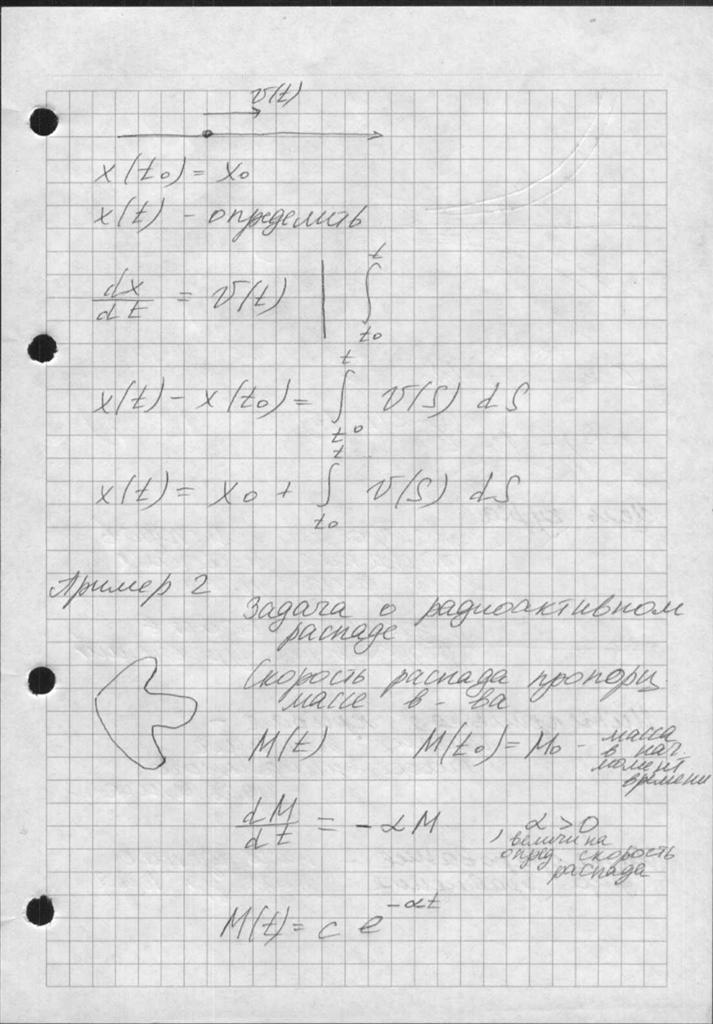 v(t)
x(t₀) = x₀
x(t) – определить
dx/dt = v(t) | ∫_{t₀}^{t}
x(t) – x(t₀) = ∫_{t₀}^{t} v(s) ds
x(t) = x₀ + ∫_{t₀}^{t} v(s) ds
Пример 2
Задача о радиоактивном
распаде
Скорость распада пропорц
массе в-ва
M(t) M(t₀) = M₀ – масса
в нач.
момент
времени
dM/dt = -αM , α > 0
величина
опред. скорость
распада
M(t) = c e^{-αt}